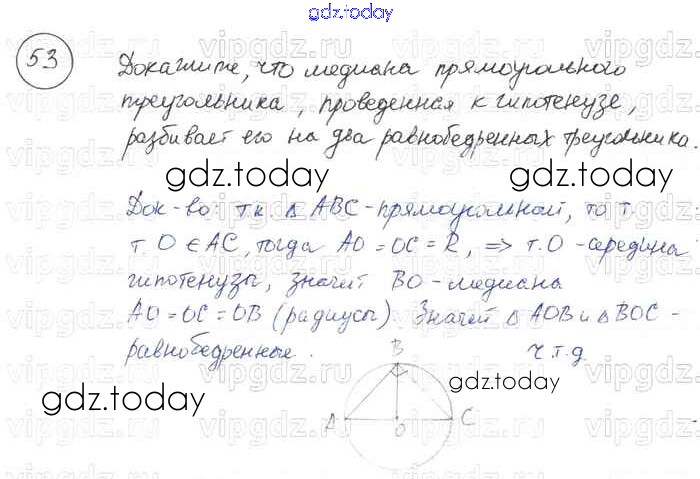 gdz.today
53
Докажите, что медиана прямоугольного
треугольника, проведенная к гипотенузе,
разбивает его на два равнобедренных треугольника.
gdz.today gdz.today
Док-во: т.к. Δ ABC - прямоугольной, то т.
т. O ∈ AC, тогда AO = OC = R, ⇒ т. O - середина
гипотенузы, значит BO - медиана
AO = OC = OB (радиусы). Значит Δ AOB и Δ BOC -
равнобедренные. ч.т.д.
B
gdz.today gdz.today
A O C
vipgdz.ru